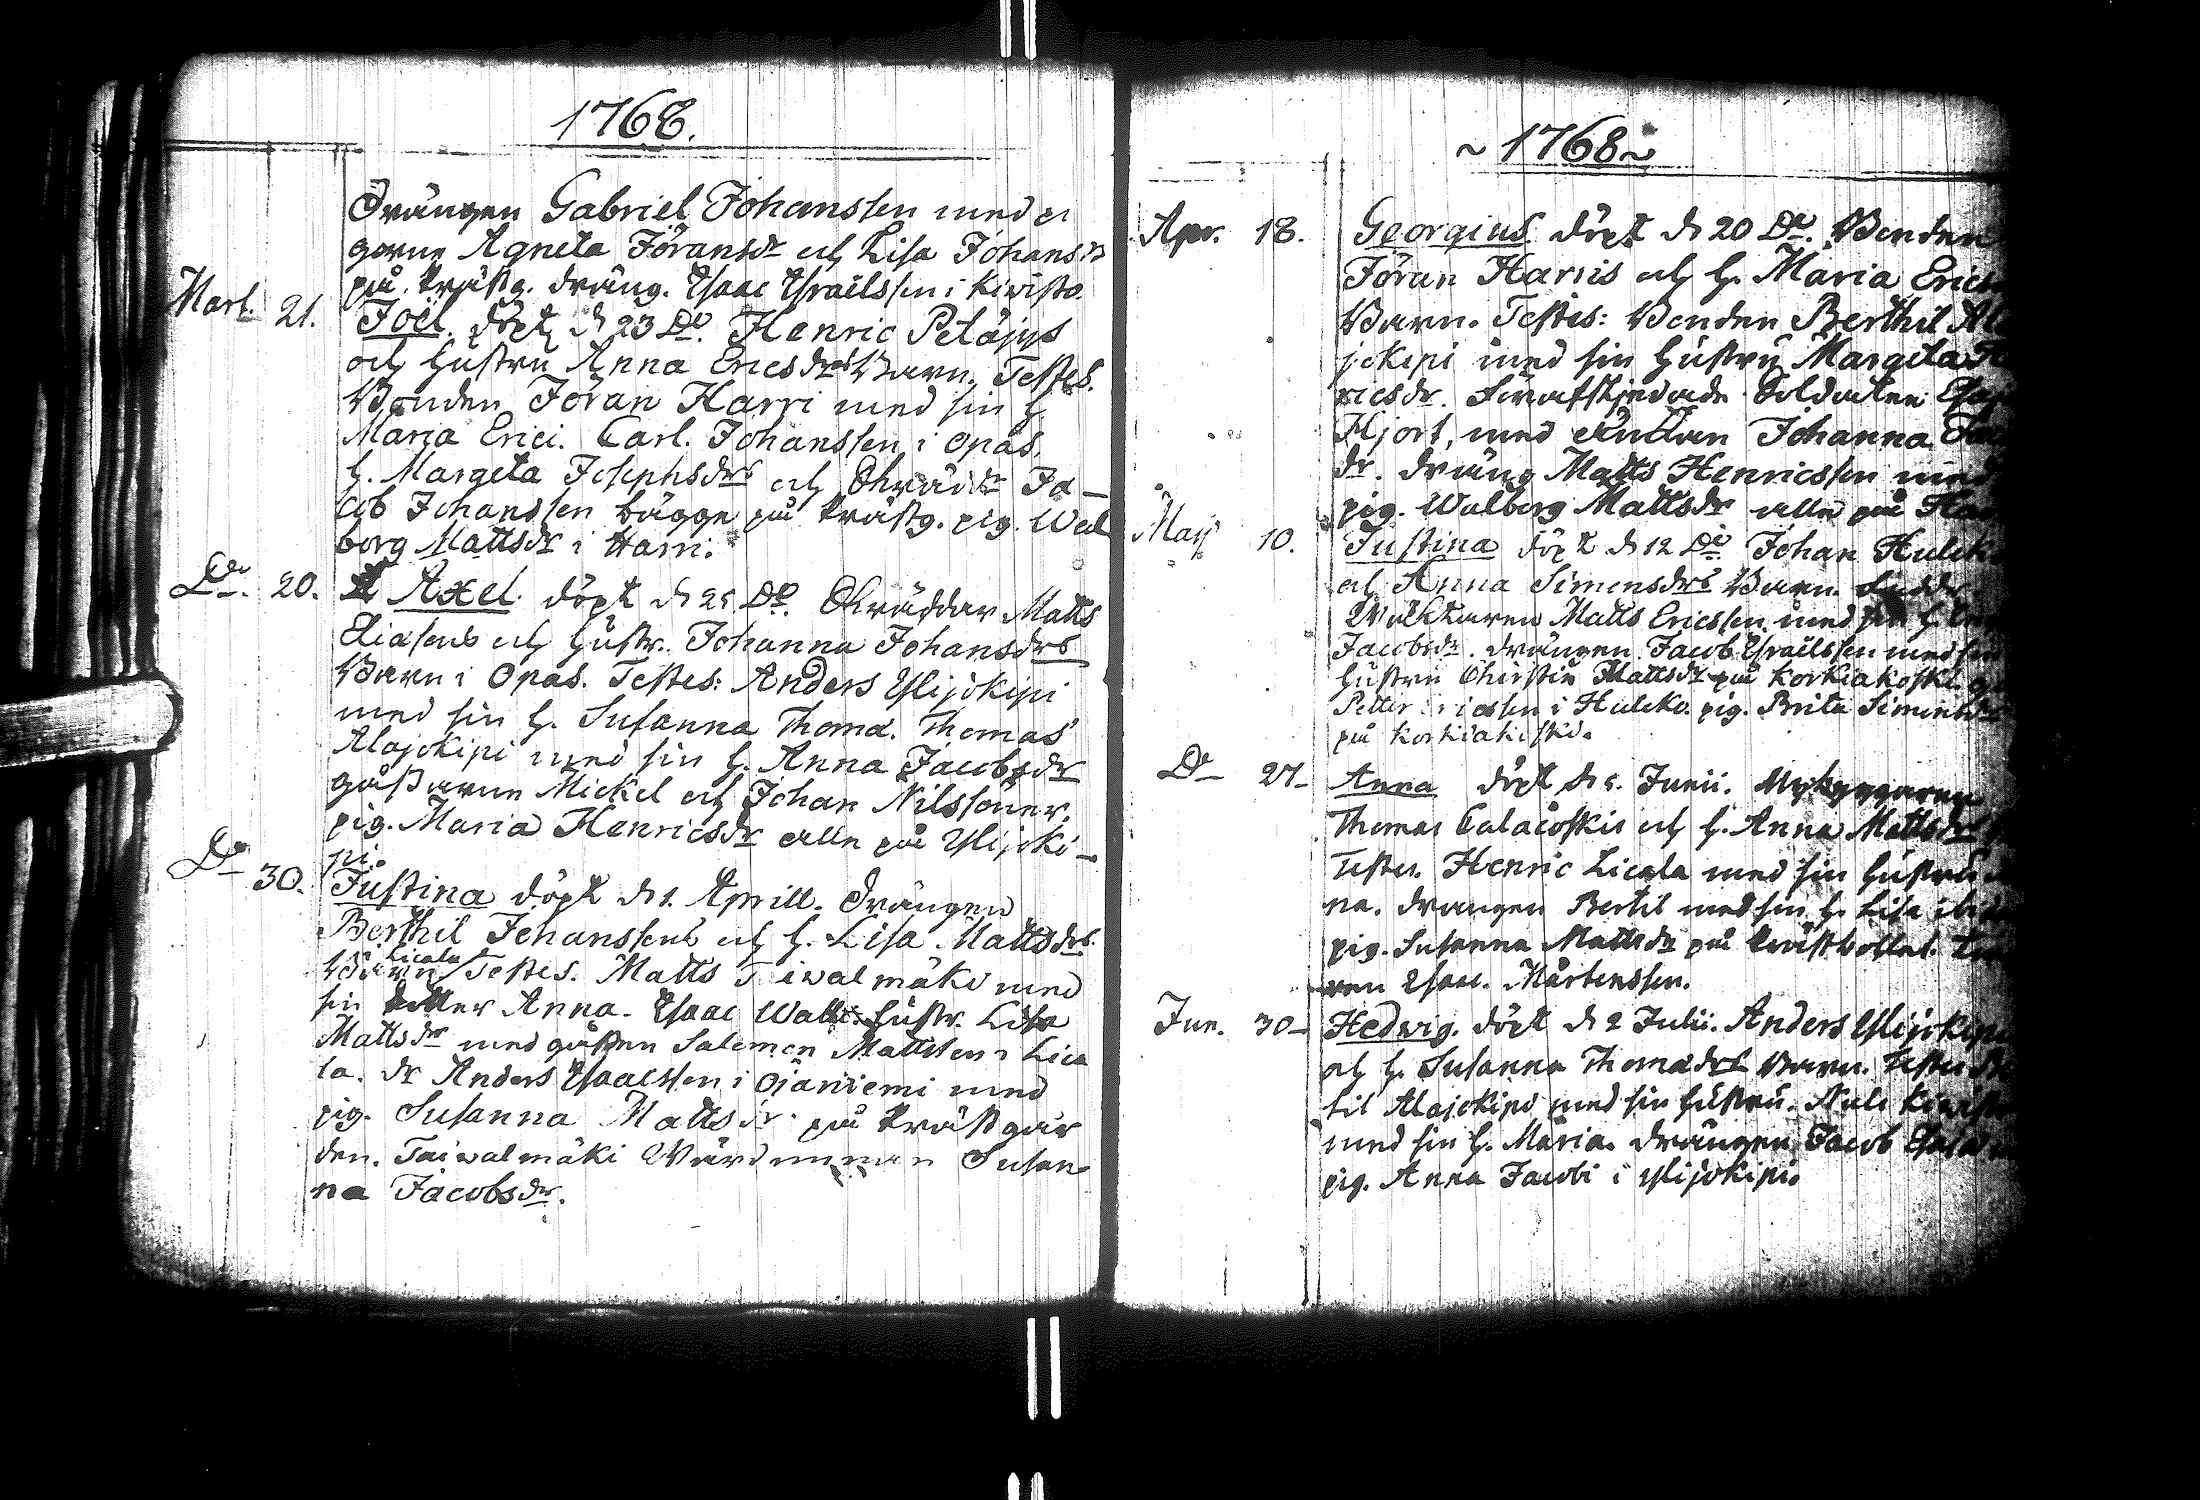 1768.
Drängen Gabriel Johanssen med pi
gorne Agneta Jöransdr och Lisa Johansdr
på Prästg. dräng. Esaac Esraëlssen i Kiristo
Mart. 21. Joël. döpt d. 23 Do. Henric Petäjys
och Hustru Anna Ericsdrs Barn. Testes.
Bonden Jöran Harri med sin H.
Maria Erici. Carl Johanssen i Opas.
H. Margeta Josephsdrs och Skräddr Ja-
cob Johanssen bägge på Prästg. pig. Wal
borg Mattsdr i Harri.
Do. 20. Axel. döpt d. 25 Do. Skräddar Matts
Eliasens och Hustr. Johanna Johansdrs
Barn i Opas. Testes: Anders Ylijokipi
med sin H. Susanna Thoma. Thomas
Alajokipi med sin H. Anna Jacobsdr
gåssarne Mickel och Johan Nilssöner.
pig. Maria Henricsdr alla på Ylijoki-
pi.
Do 30. Justina döpt d. 1. Aprill. Drängen
Berthil Johanssens och H. Lisa Mattsdrs
Licala
Barn Testes. Matts Taiwalmäki med
sin dotter Anna. Esaac Hustr. Lisa
Mattsdr med gåssen Salomon Mattssen i Lica
la. dr Anders Esaacssen i Ojaniemi med
pig. Susanna Mattsdr på Prästgår
den. Taiwalmäki Susan
na Jacobsdr.
~ 1768 ~
Apr. 18. Georgius döpt d 20 Do. Bonden
Jöran Harris och H. Maria Erics
Barn. Testes: Bonden Berthil Ala
jokipi med sin Hustru Margeta
ricsdr. Soldaten
Hjort, med Johanna
dr. dräng Matts Henricssen med
pig. Walborg Mattsdr alla på
Maji 10. Justina döpt d 12 Do Johan
och Anna Simonsdrs Barn.
Matts Ericssen med sin H.
Jacobsdr. drängen Jacob Esraëlssen med sin
Hustru Christin Mattsdr på Korkiakoski
Petter i pig. Brita Simonsdr
på Korkiakoski.
Do 27- Anna döpt d 5. Junii. Nybyggaren
Thomas Calacoskis och H. Anna Mattsdrs
Testes. Henric Licala med sin Hustru
na. drängen Bertil med sin H. Lisa
pig. Susanna Mattsdr på
Esaac Mårtenssen.
Jun. 30- Hedwig. döpt d 2 Julii. Anders Ylijokipi
och H. Susanna Thomædrs Barn. Testes
til Alajokipi med sin Hustru.
med sin H. Maria. drängen Jacob
pig. Anna Jacobi i Ylijokipi.